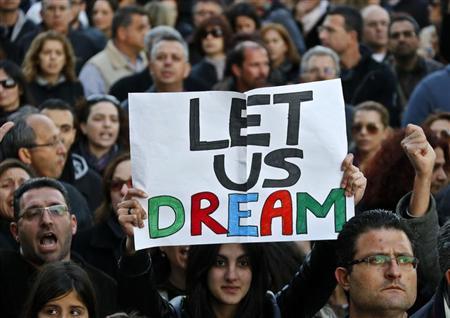 LET
US
DREAM